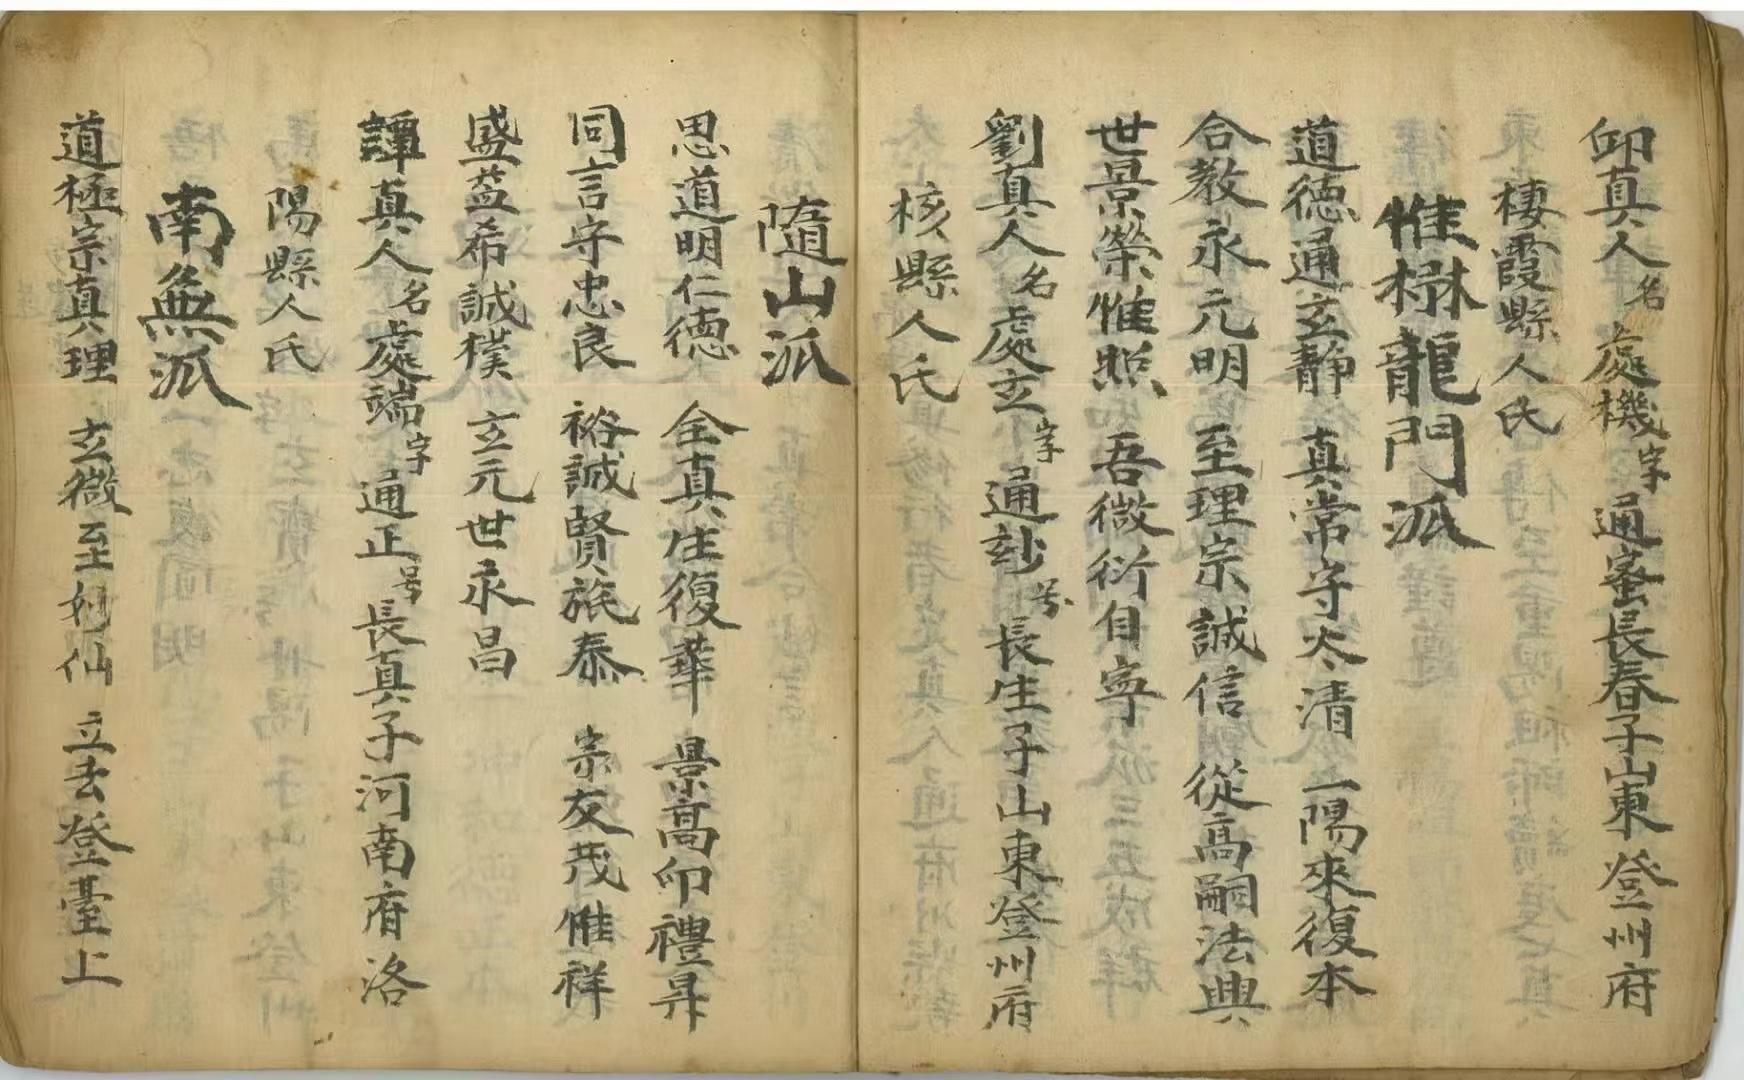 卬真人名處機字通蜜長春子山東登州府
棲霞縣人氏
惟楙龍門派
道德通玄靜 真常守太清 一陽來復本
合教永元明 至理宗誠信 從高嗣法興
世景榮惟熙 吾微衍自寧
劉真人名處玄字通玅号長生子山東登州府
核縣人氏
隨山派
思道明仁德 全真性復華 景高卬禮昇
同言守忠良 裕誠賢旅泰 宗友茂惟祥
盛益希誠樸 玄元世永昌
譚真人名處端字通正号長真子河南府洛
陽縣人氏
南無派
道極宗真理 玄微至仙 立去登臺上